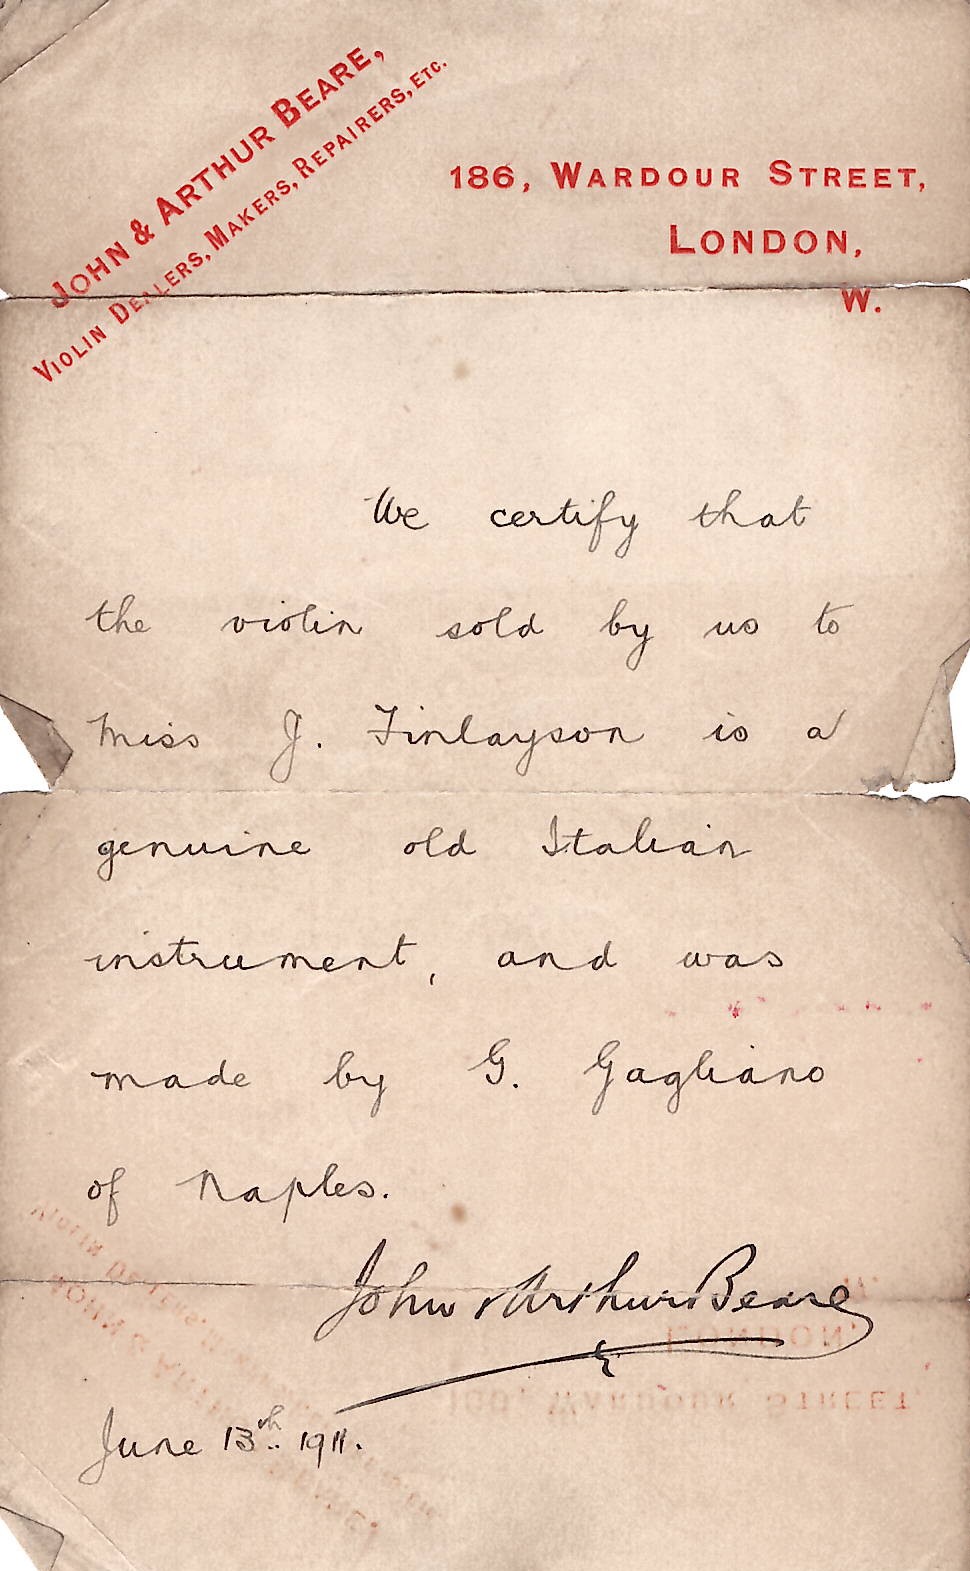 JOHN & ARTHUR BEARE,
VIOLIN DEALERS, MAKERS, REPAIRERS, ETC.
186, WARDOUR STREET,
LONDON,
W.
We certify that
the violin sold by us to
Miss J. Finlayson is a
genuine old Italian
instrument, and was
made by G. Gagliano
of Naples.
John & Arthur Beare
June 13th. 1911.